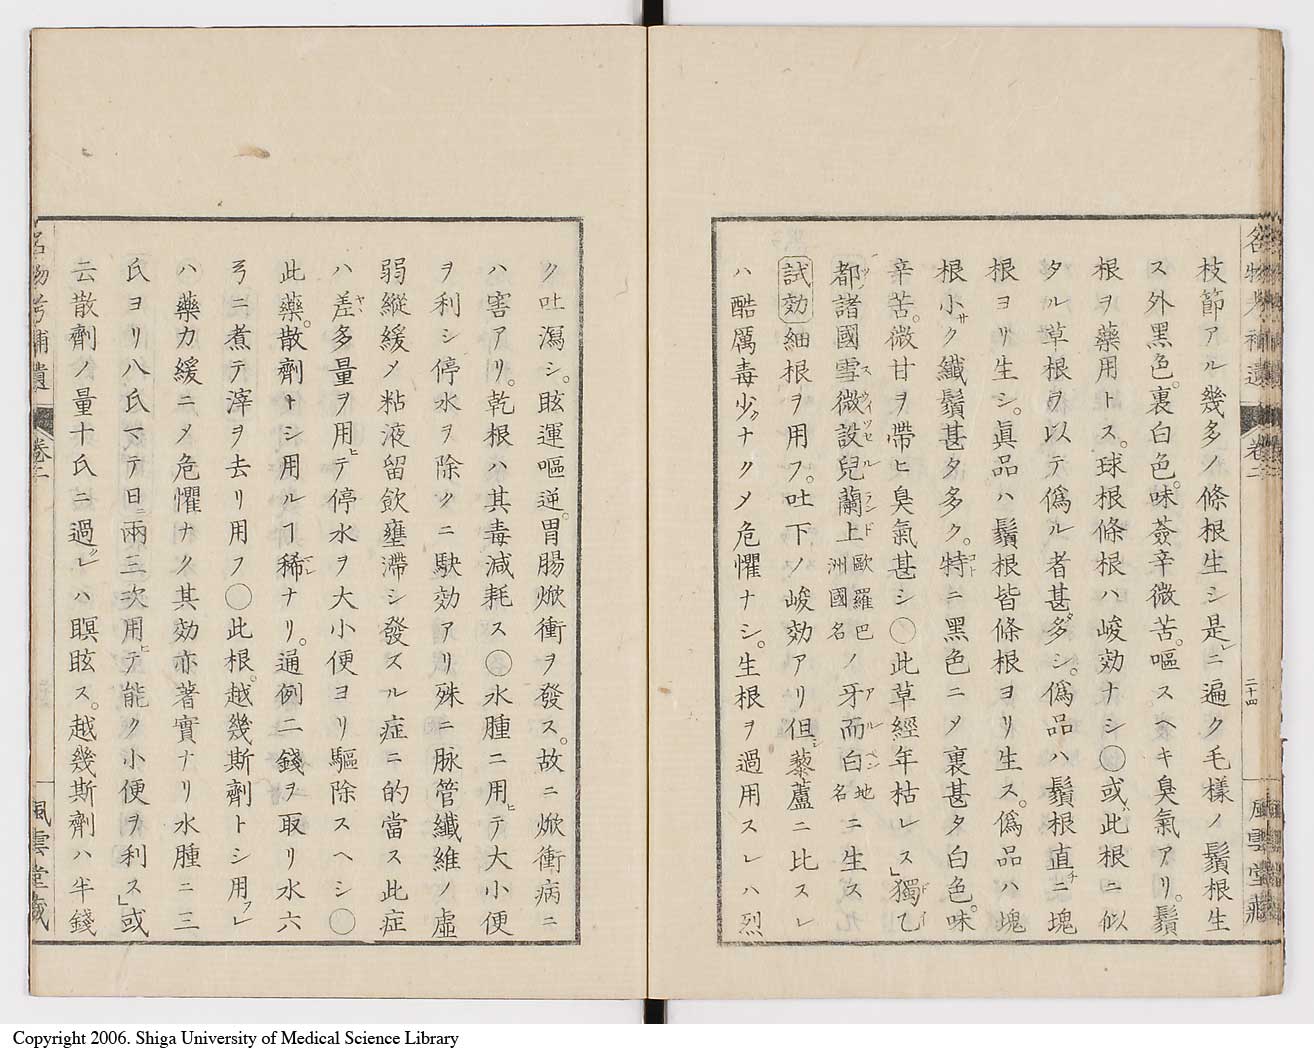 名物考補遺 卷二 二十四 風雲堂藏
枝節アル幾多ノ條根生シ是レニ遍ク毛樣ノ鬚根生
ス外黑色。裏白色。味薟辛微苦。嘔スヘキ臭氣アリ。鬚
根ヲ藥用トス。球根條根ハ峻効ナシ〇或ハ此根ニ似
タル草根ヲ以テ僞ル者甚タ多シ。僞品ハ鬚根直チニ塊
根ヨリ生シ。眞品ハ鬚根皆條根ヨリ生ス。僞品ハ塊
根小サク纖鬚甚タ多ク。特コトニ黑色ニメ裏甚タ白色。味
辛苦。微甘ヲ帶ヒ臭氣甚シ〇此草經年枯レス」獨ドイ乙ツ
都諸國雪微設兒蘭上スウイツセルランド歐羅巴洲國名ノ牙而白アルペン地名ニ生ス
試効 細根ヲ用フ。吐下ノ峻効アリ但シ藜蘆ニ比スレ
ハ酷厲毒少クナクメ危懼ナシ。生根ヲ過用スレハ烈
ク吐瀉シ。眩運嘔逆。胃腸焮衝ヲ發ス。故ニ焮衝病ニ
ハ害アリ。乾根ハ其毒減耗ス〇水腫ニ用ヒテ大小便
ヲ利シ停水ヲ除クニ駃効アリ殊ニ脉管纖維ノ虛
弱縱緩メ粘液留飲壅滯シ發スル症ニ的當ス此症
ハ差ヤヤ多量ヲ用ヒテ停水ヲ大小便ヨリ驅除スヘシ〇
此藥。散劑トシ用ルヿ稀マレナリ。通例二錢ヲ取リ水六
弓ニ煮テ滓ヲ去リ用フ〇此根。越幾斯劑トシ用フレ
ハ藥力緩ニメ危懼ナク其効亦著實ナリ水腫ニ三
氏ヨリ八氏マテ日ニ兩三次用ヒテ能ク小便ヲ利ス」或
云散劑ノ量十氏ニ過クレハ瞑眩ス。越幾斯劑ハ半錢
名物考補遺 卷二 風雲堂藏
Copyright 2006. Shiga University of Medical Science Library